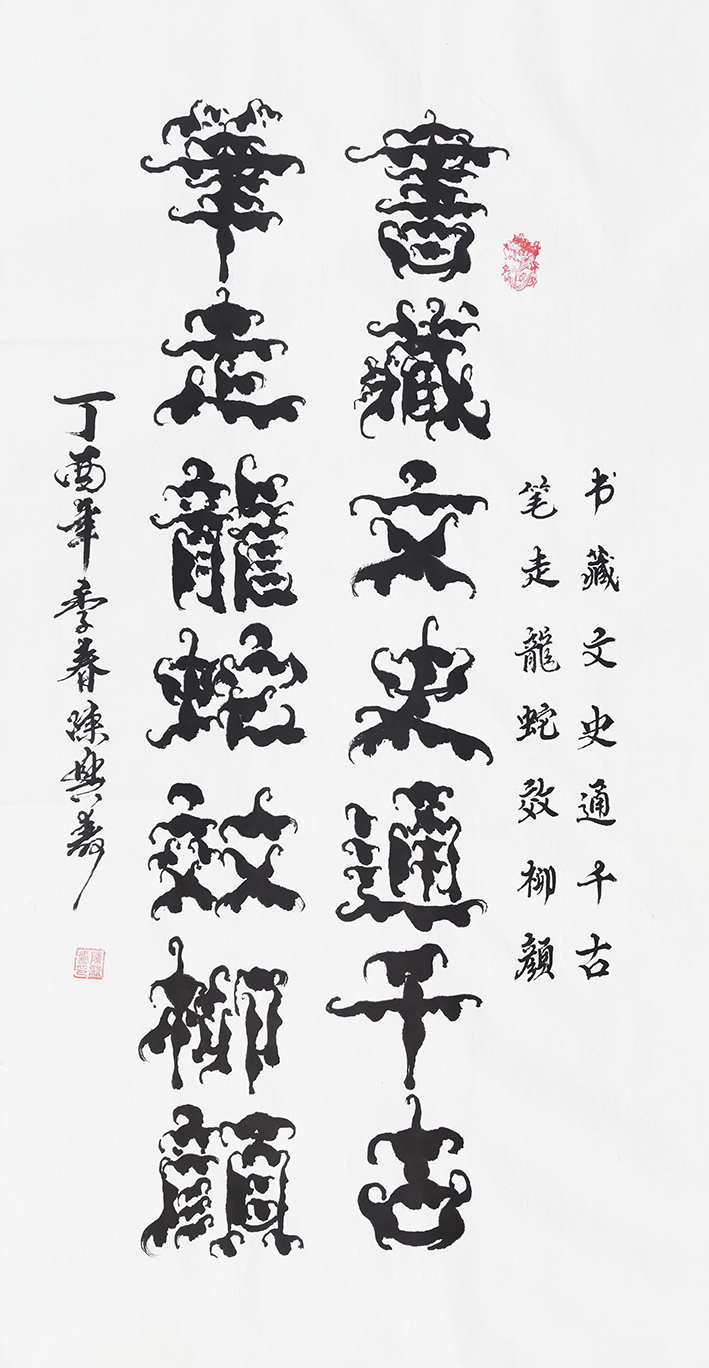 书藏文史通千古
笔走龍蛇效柳顔
書藏文史通千古
筆走龍蛇效柳顔
丁酉年季春陳興